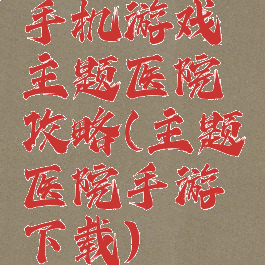 手机游戏
主题医院
攻略(主题
医院手游
下载)